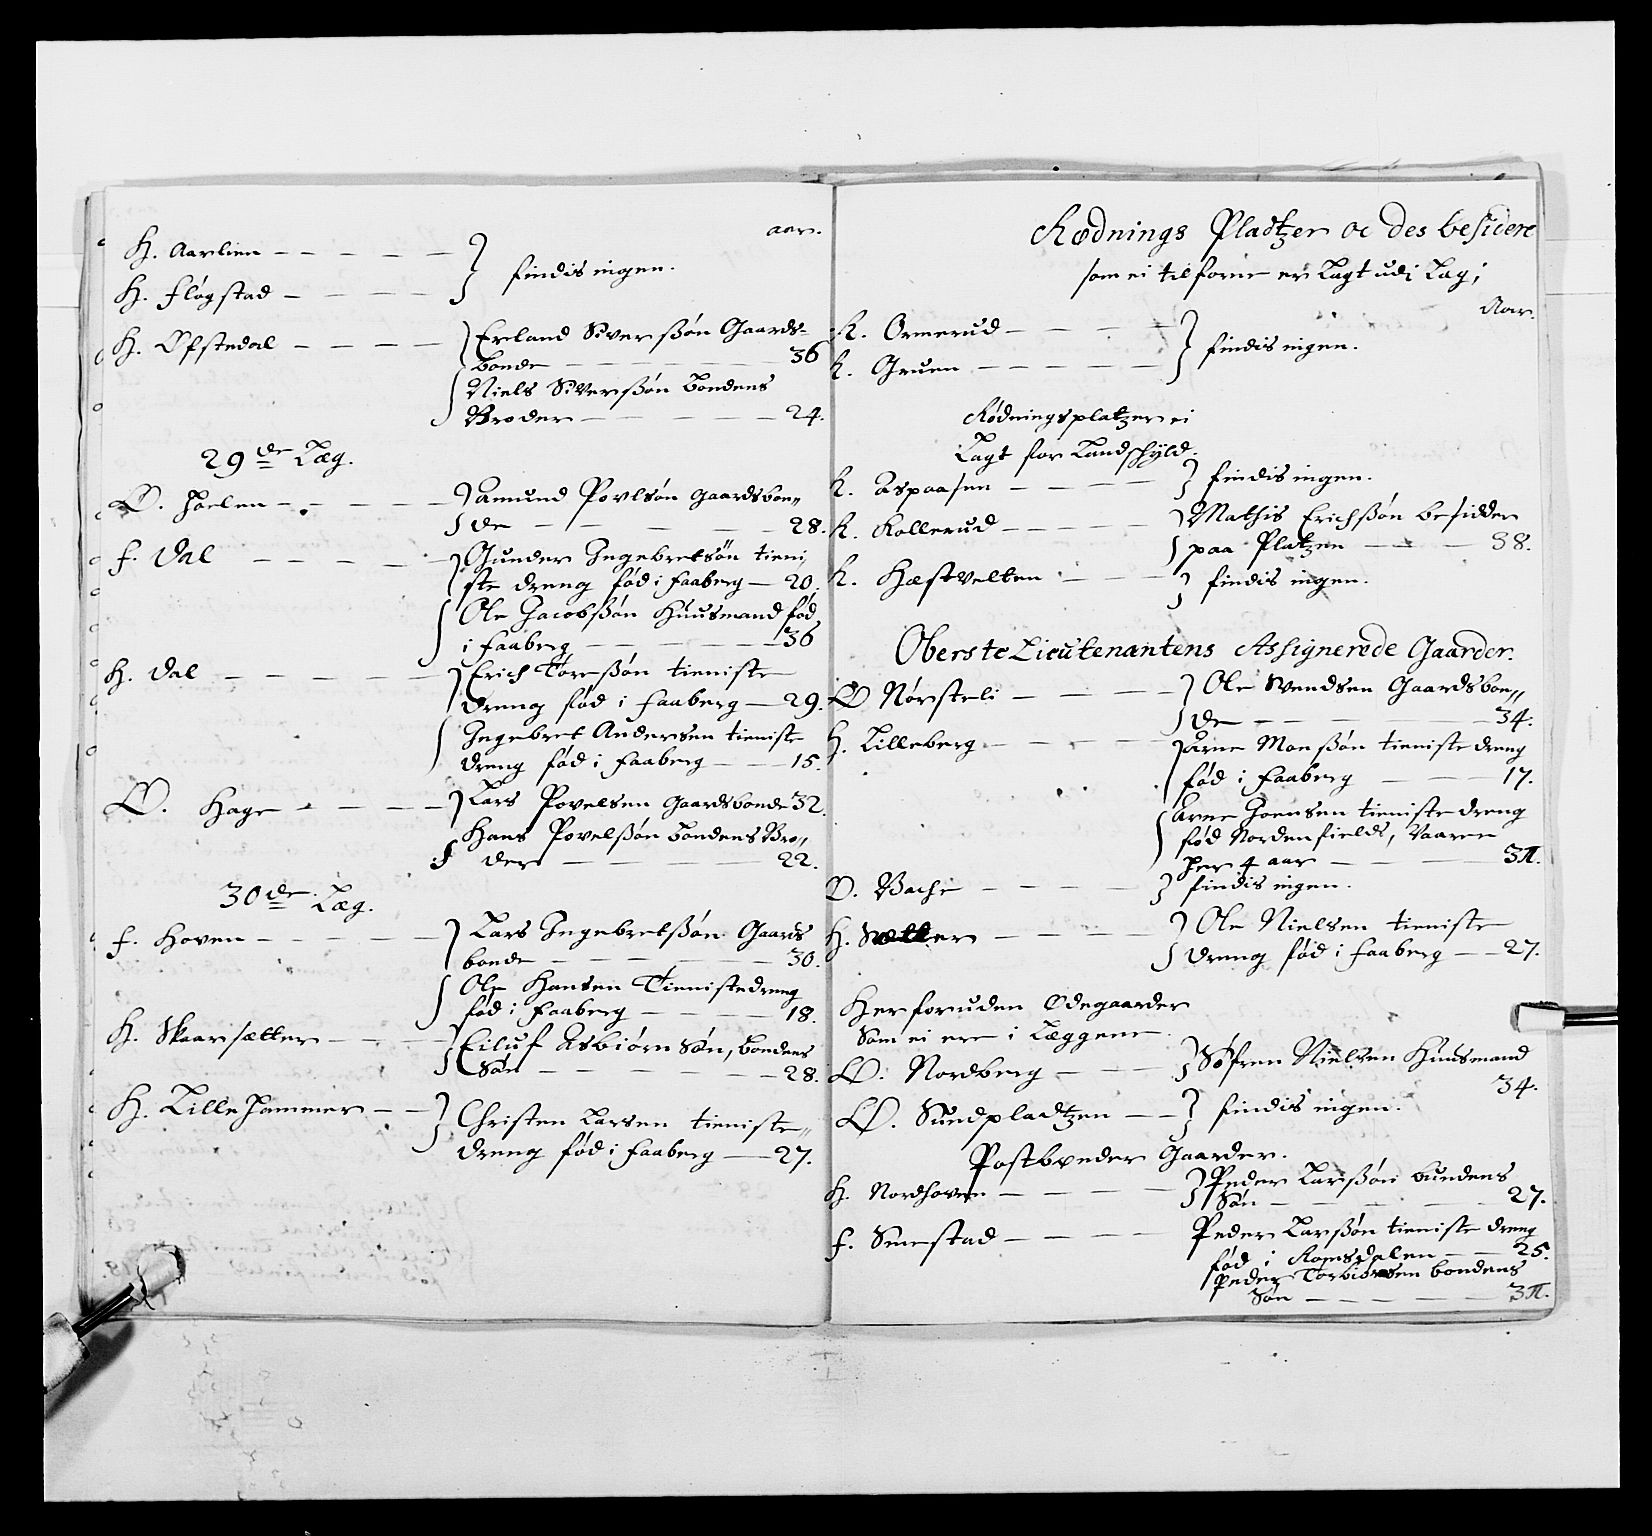 aar.
H. Aarlien — — — — — } findis ingen.
H. Fløgstad — — — —
H. Ofstedal — — — — } Erland Siverssøn Gaards-
bonde — — — — — 36
} Niels Siverssøn bondens
Broder — — — — — 24.
29de Læg.
Ø. Hoelen — — — — — } Amund Povlsøn gaardsbon„
de — — — — — 28.
f. Dal — — — — — } Gunder Ingebretsøn tieni„
ste dreng fød i Faaberg — 20.
} Ole Jacobssøn Huusmand fød
i Faaberg — — — — 36
H. Dal — — — — — } Erich Toressøn tieniste
dreng fød i Faaberg — 29.
} Ingebret Andersen tieniste
dreng fød i Faaberg — — 15.
Ø. Hage — — — — } Lars Povelsen gaardsbonde 32.
} Hans Povelssøn bondens Bro„
der — — — — — 22.
30de Læg.
f. Hoven — — — — — } Lars Ingebretssøn Gaards
bonde — — — — — 30.
} Ole Hansen Tienistedreng
fød i Faaberg — — — — 18.
H. Skaarsætter — — — } Eiluf Asbiørn Søn, bondens
Søn — — — — — 28.
H. Lillehammer — — } Christen Larsen tieniste„
dreng fød i Faaberg — 27.
Rødnings Pladtzer oc des besidere
som ei tilforne er Lagt udi Læg;
Aar.
R. Ormerud — — — — } findis ingen.
R. Gruen — — — — —
Rødningsplatzer ei
Lagt for Landschyld.
R. Aspaasen — — — — } findis ingen.
R. Rollerud — — — — } Mathis Erichssøn besidder
paa Platzen — — — 38.
R. Hæstvelten — — } findis ingen.
Oberste Lieutenantens Assignerede Gaarder.
Ø Nørsteli — — — — } Ole Svendsen Gaardsbon„
de — — — — — 34.
H. Lilleberg — — — — } Arne Monssøn tieniste dreng
fød i Faaberg — — — 17.
} Arne Joensen tieniste dreng
fød Nordenfields, Vaaren
her 4 aar — — — — 3π.
Ø. Bache — — — — } findis ingen.
H. Sætter — — — — } Ole Nielsen tieniste
dreng fød i Faaberg — — 27.
Herforuden Ødegaarder
Som ei ere i Læggene
Ø. Nordberg — — — } Søfren Nielsen Huusmand
34.
Ø. Sundpladtzen — — } findis ingen.
Postbønder Gaarder.
H. Nordhoven — — — — } Peder Larssøn bundens
Søn — — — — — 27.
f. Smestad — — — — Peder Larssøn tieniste dreng
fød i Romsdalen — — 25.
Peder Torbiørsen bondens
Søn — — — — — 3π.